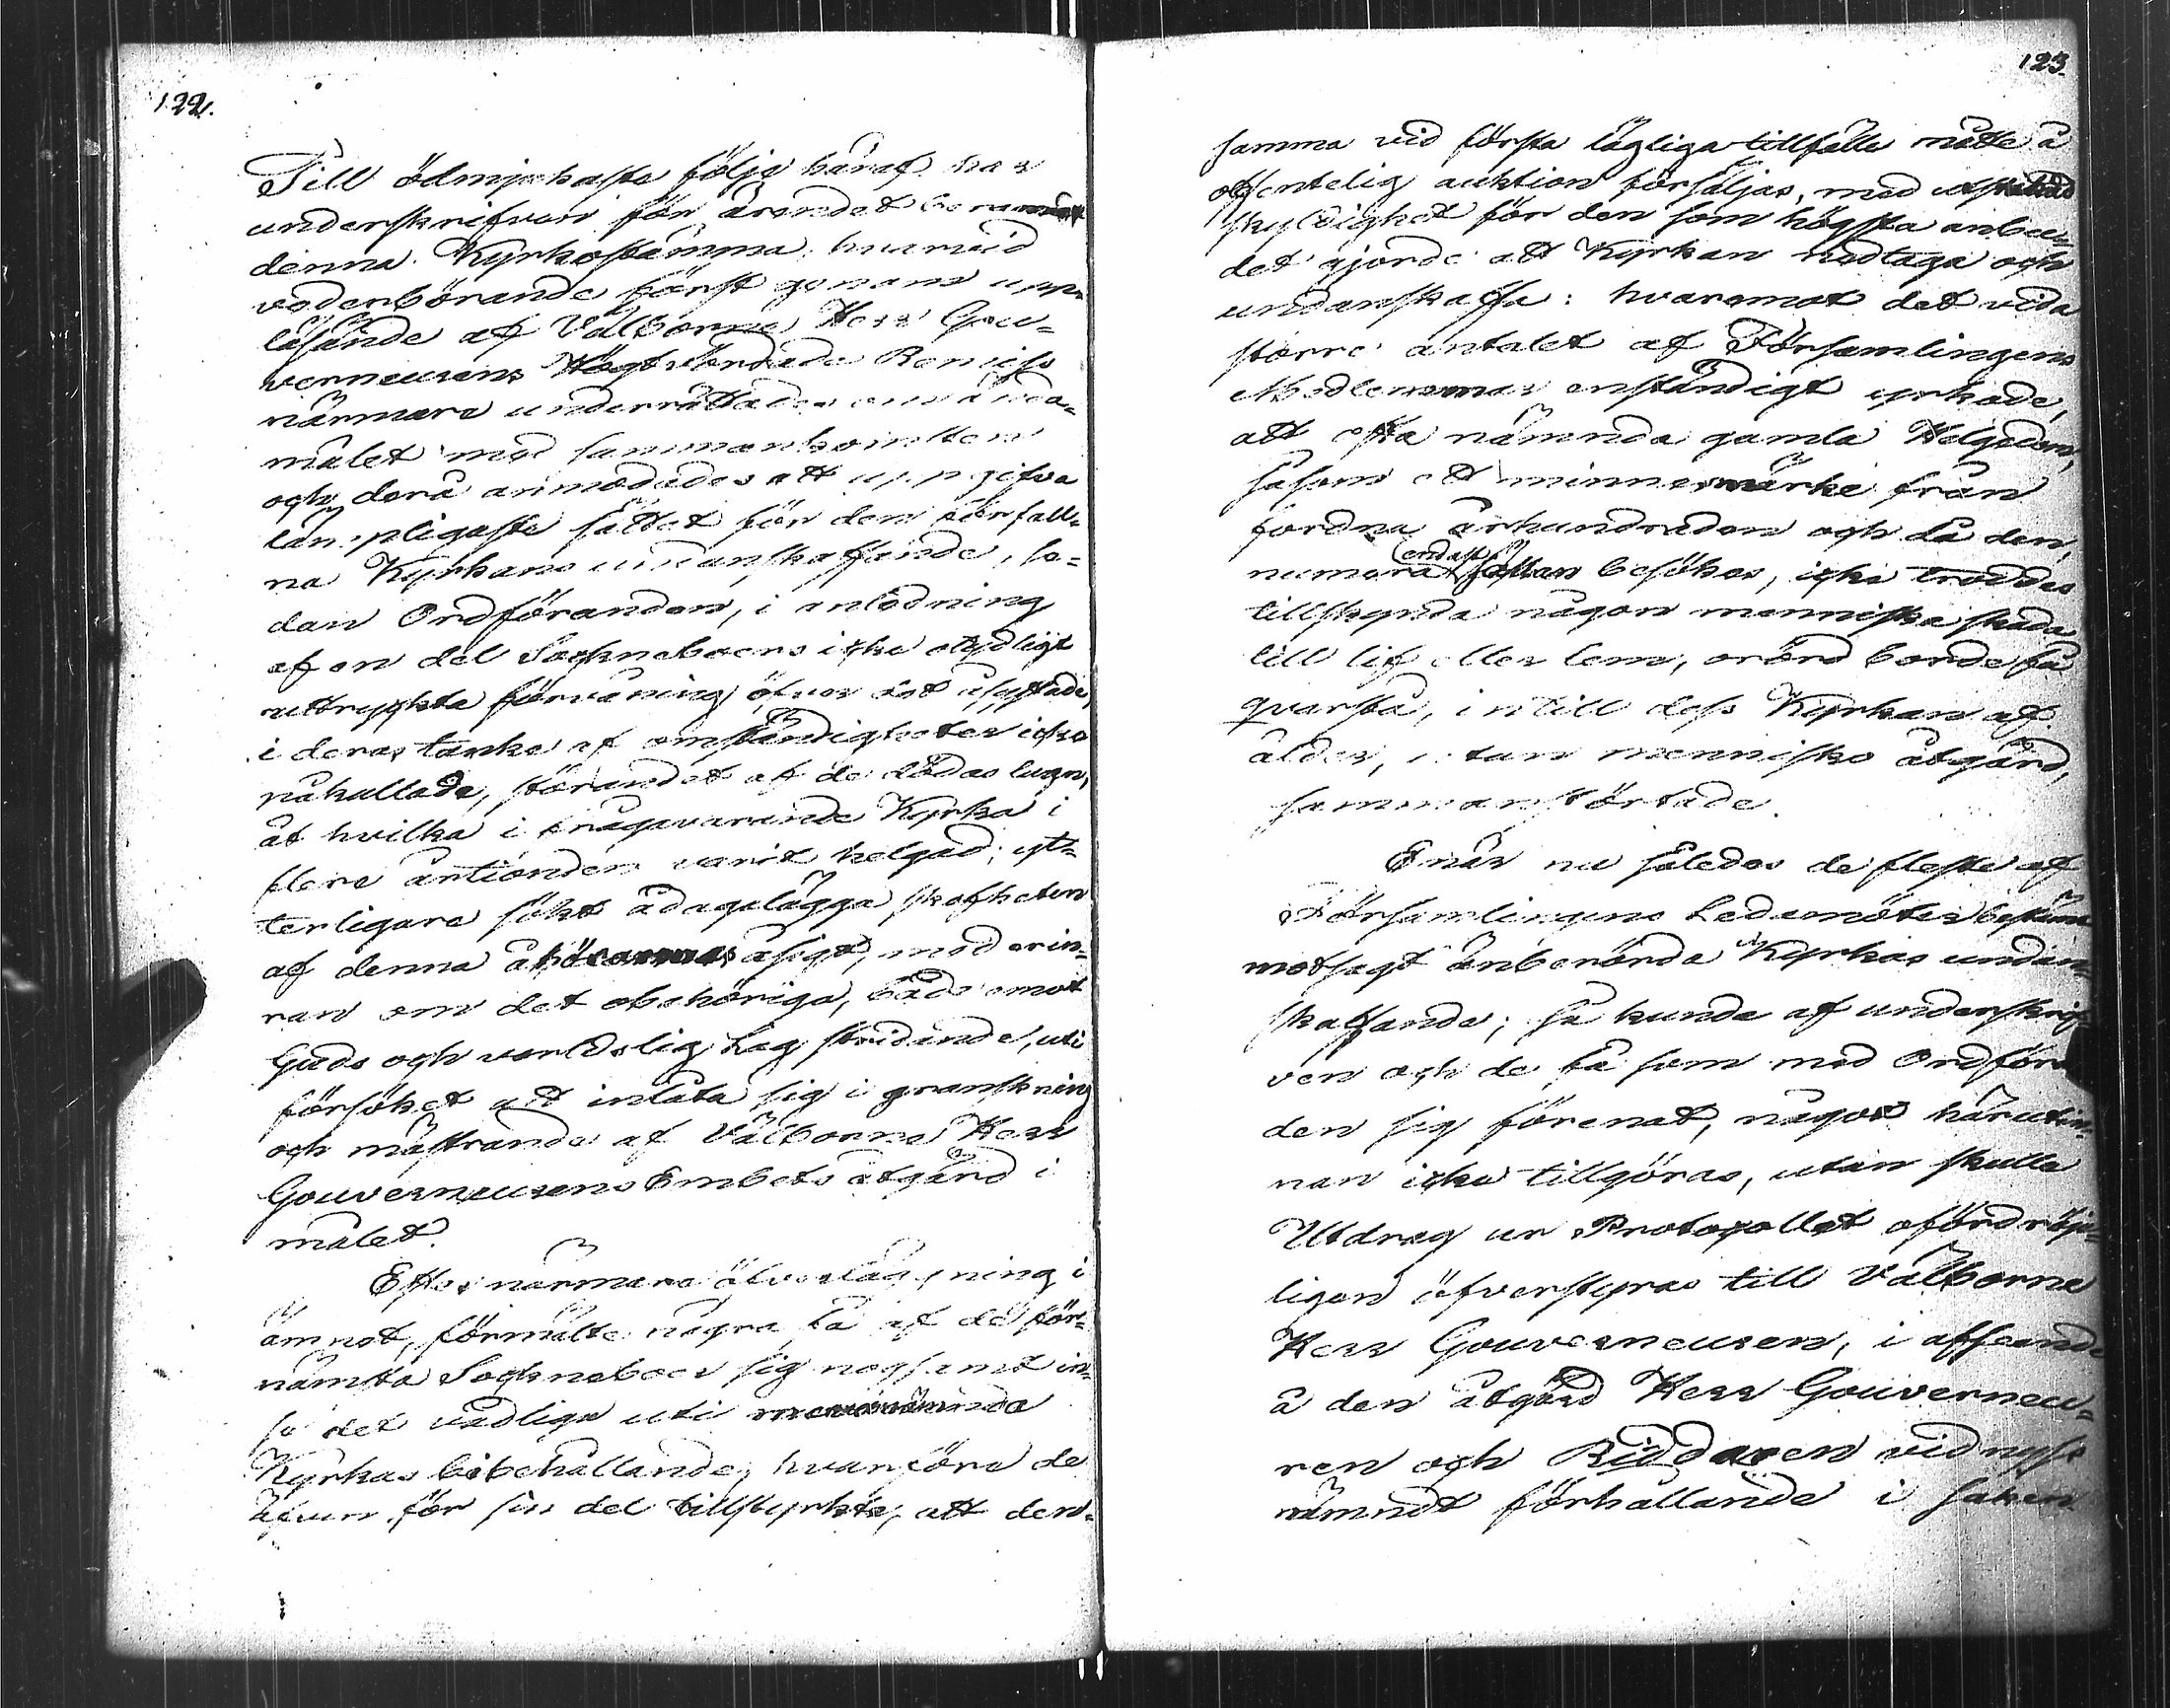 122.
Till ödmjukaste följe häraf har
underskrifven för ärendet
denna Kyrkostämma; hvarvid
vederbörande först genom upp-
läsande af Välborne Herr Gou-
verneurens Högtvördade Remiss
närmare underrättades om ända-
målet med sammankomsten
och derå anmodades att uppgifva
lämpligaste sättet för den förfall-
na Kyrkans undanskaffande, se-
dan Ordföranden, i anledning
af en del Sockneboers icke otydligt
uttryckta förvåning öfver det åsyftade,
i deras tanke af omständigheter icke
påkallade, störandet af de dödas lugn,
åt hvilka i frågavarande Kyrka i
flere årtionden varit helgad; yt-
terligare sökt ådagalägga skefheten
af denna åhörarnas åsigt, med erin-
ran om det obehöriga, både emot
Guds och verldslig Lag stridande, uti
försöket att inlåta sig i granskning
och mästrande af Välborne Herr
Gouverneurens Embets åtgärd i
målet.
Efter närmare öfverläggning i
ämnet, förmälte några få af de för-
nämsta Sockneboer sig nogsamt in-
se det vådliga uti
Kyrkas bibehållande; hvarföre de
äfven för sin del tillstyrkte, att den-
123.
samma vid första lägliga tillfälle måtte å
offentelig auktion försäljas, med
skyldighet för den som högsta anbu-
det gjorde att Kyrkan nedtaga och
undanskaffa: hvaremot det vida
större antalet af Församlingens
Medlemmar enständigt yrkade,
att ofta nämnda gamla Helgedom,
såsom ett minnesmärke från
fordna århundraden och då den,
endast
numera sällan besökes, icke troddes
tillskynda någon menniska skada
till lif eller lem, orörd borde få
qvarstå, intill dess Kyrkan af
ålder, utan mennisko åtgärd,
sammanstörtade.
Enär nu således de fleste af
Församlingens Ledamöter bestämt
motsagt änberörde Kyrkas undan-
skaffande; så kunde af underskrif
ven och de få som med Ordföran
den sig förenat, något härutin-
nan icke tillgöras, utan skulle
Utdrag ur Protocollet ofördröje-
ligen öfverstyras till Välborne
Herr Gouverneuren, i afseende
å den åtgärd Herr Gouverneu-
ren och Riddaren vid nyss
nämndt förhållande i saken